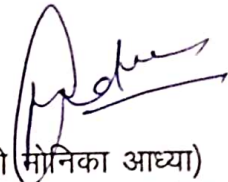 (मोनिका आध्या)